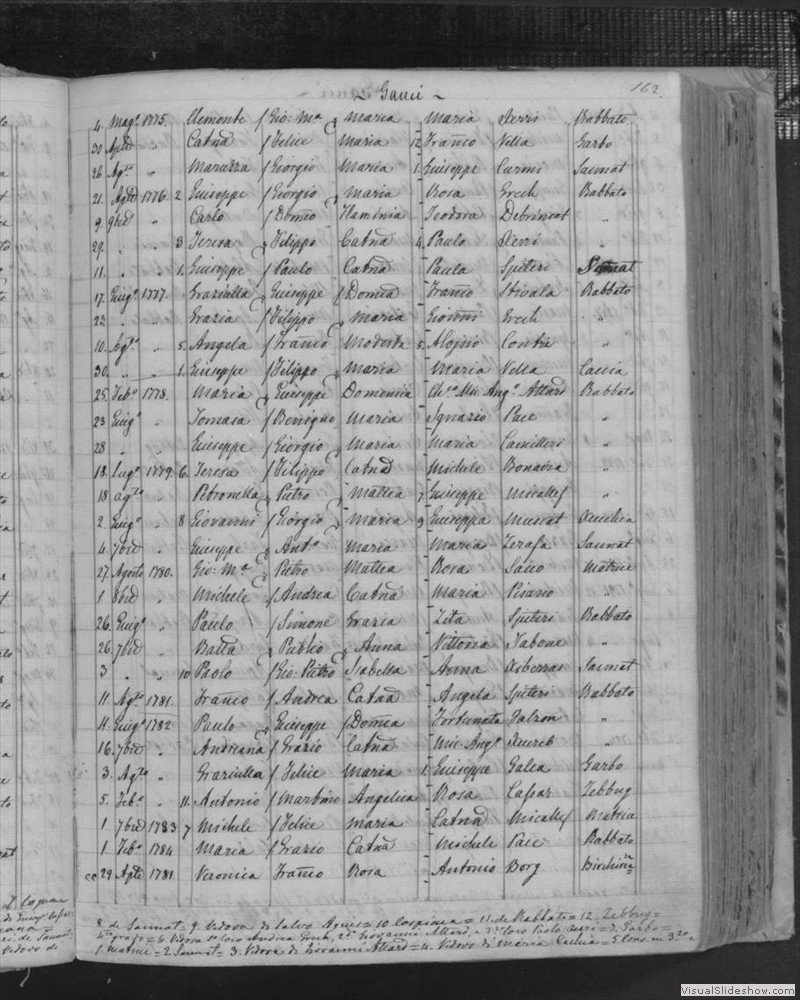 162
~ Gauci ~
4. Magº 1775. Clemonte f Gio: Mª Maria Maria Xerri Rabbato
30 Aple " Catnã f Felice Maria 12 Franco Vella Garbo
26 Agto " Maruzza f Giorgio Maria 1 Giuseppe Curmi Sannat
21. Aple 1776. 2 Giuseppe f Giorgio Maria Rosa Grech Rabbato
9. 9bre " Carlo f Domco Flaminia Teodora Debrincat "
29. " " 3 Teresa Filippo Catnã 4. Paulo Xerri "
11. " " 1. Giuseppe f Paulo Catnã Paula Spiteri Sannat
17. Giugº 1777. Graziulla Giuseppe f Domca Franco Stivala Rabbato
22 " " Grazia f Filippo Maria Giovnni Grech "
10. Agto " 5. Angela f Franco Modesta 5 Alojsio Contri "
30. " " 1. Giuseppe f Filippo Maria Maria Vella Caccia
25. Febº 1778. Maria Giuseppe Domenica Mic: Angº Attard Rabbato
23 Giugº " Tomasa f Benigno Maria Ignazio Pace "
28 " " Giuseppe f Giorgio Maria Maria Camilleri "
18. Lugº 1779. 6. Teresa f Filippo Catnã Michele Bonavia "
18 Agto " Petronella Pietro Mattea 7 Giuseppe Micallef "
2. Giugº " 8 Giovanni f Giorgio Maria 9 Giuseppa Muscat Xeuchia
4. 7bre " Giuseppe Antº Maria Maria Zerafa Sannat
27. Agosto 1780. Gio: Mª Pietro Mattea Rosa Matrice
1 8bre " Michele f Andrea Catnã Maria Pisano "
26. Giugº " Paulo f Simone Grazia Zita Spiteri Rabbato
26. 7bre " Batta Publio Anna Vittoria Tabone "
3 " " 10 Paolo f Gio: Pietro Isabella Anna Axberras Sannat
11. Agto 1781. Franco f Andrea Catnã Angela Spiteri Rabbato
11. Giugº 1782 Paulo Giuseppe f Domca Fortunata Falzon "
16. 7bre " Andreana f Grazio Catnã Mic: Angº Xuereb "
3. Agto " Graziulla f Felice Maria 1 Giuseppe Galea Garbo
5. Febº " 11. Antonio f Marbino Angelica Rosa Caspar Zebbug
1 7bre 1783 7 Michele f Felice Maria Catnã Micallef Matrice
1 Febº 1784 Maria f Grazio Catnã Michele Pace Rabbato
29. Aple 1781. Veronica Franco Rosa Antonio Borg
8. de Sannat = 9. Vedova di Salvo Agius = 10. Cospicua = 11. de Rabbato = 12. Zebbug =
= 6. Vedova 1º loco Andrea Grech, 2º Giovanni Attard, e 3º loco Paolo = 7. Garbo =
1. Matrice = 2. Sannat = 3. Vedova di Giovanni Attard = 4. Vedovo di Maria = 5.
VisualSlideshow.com